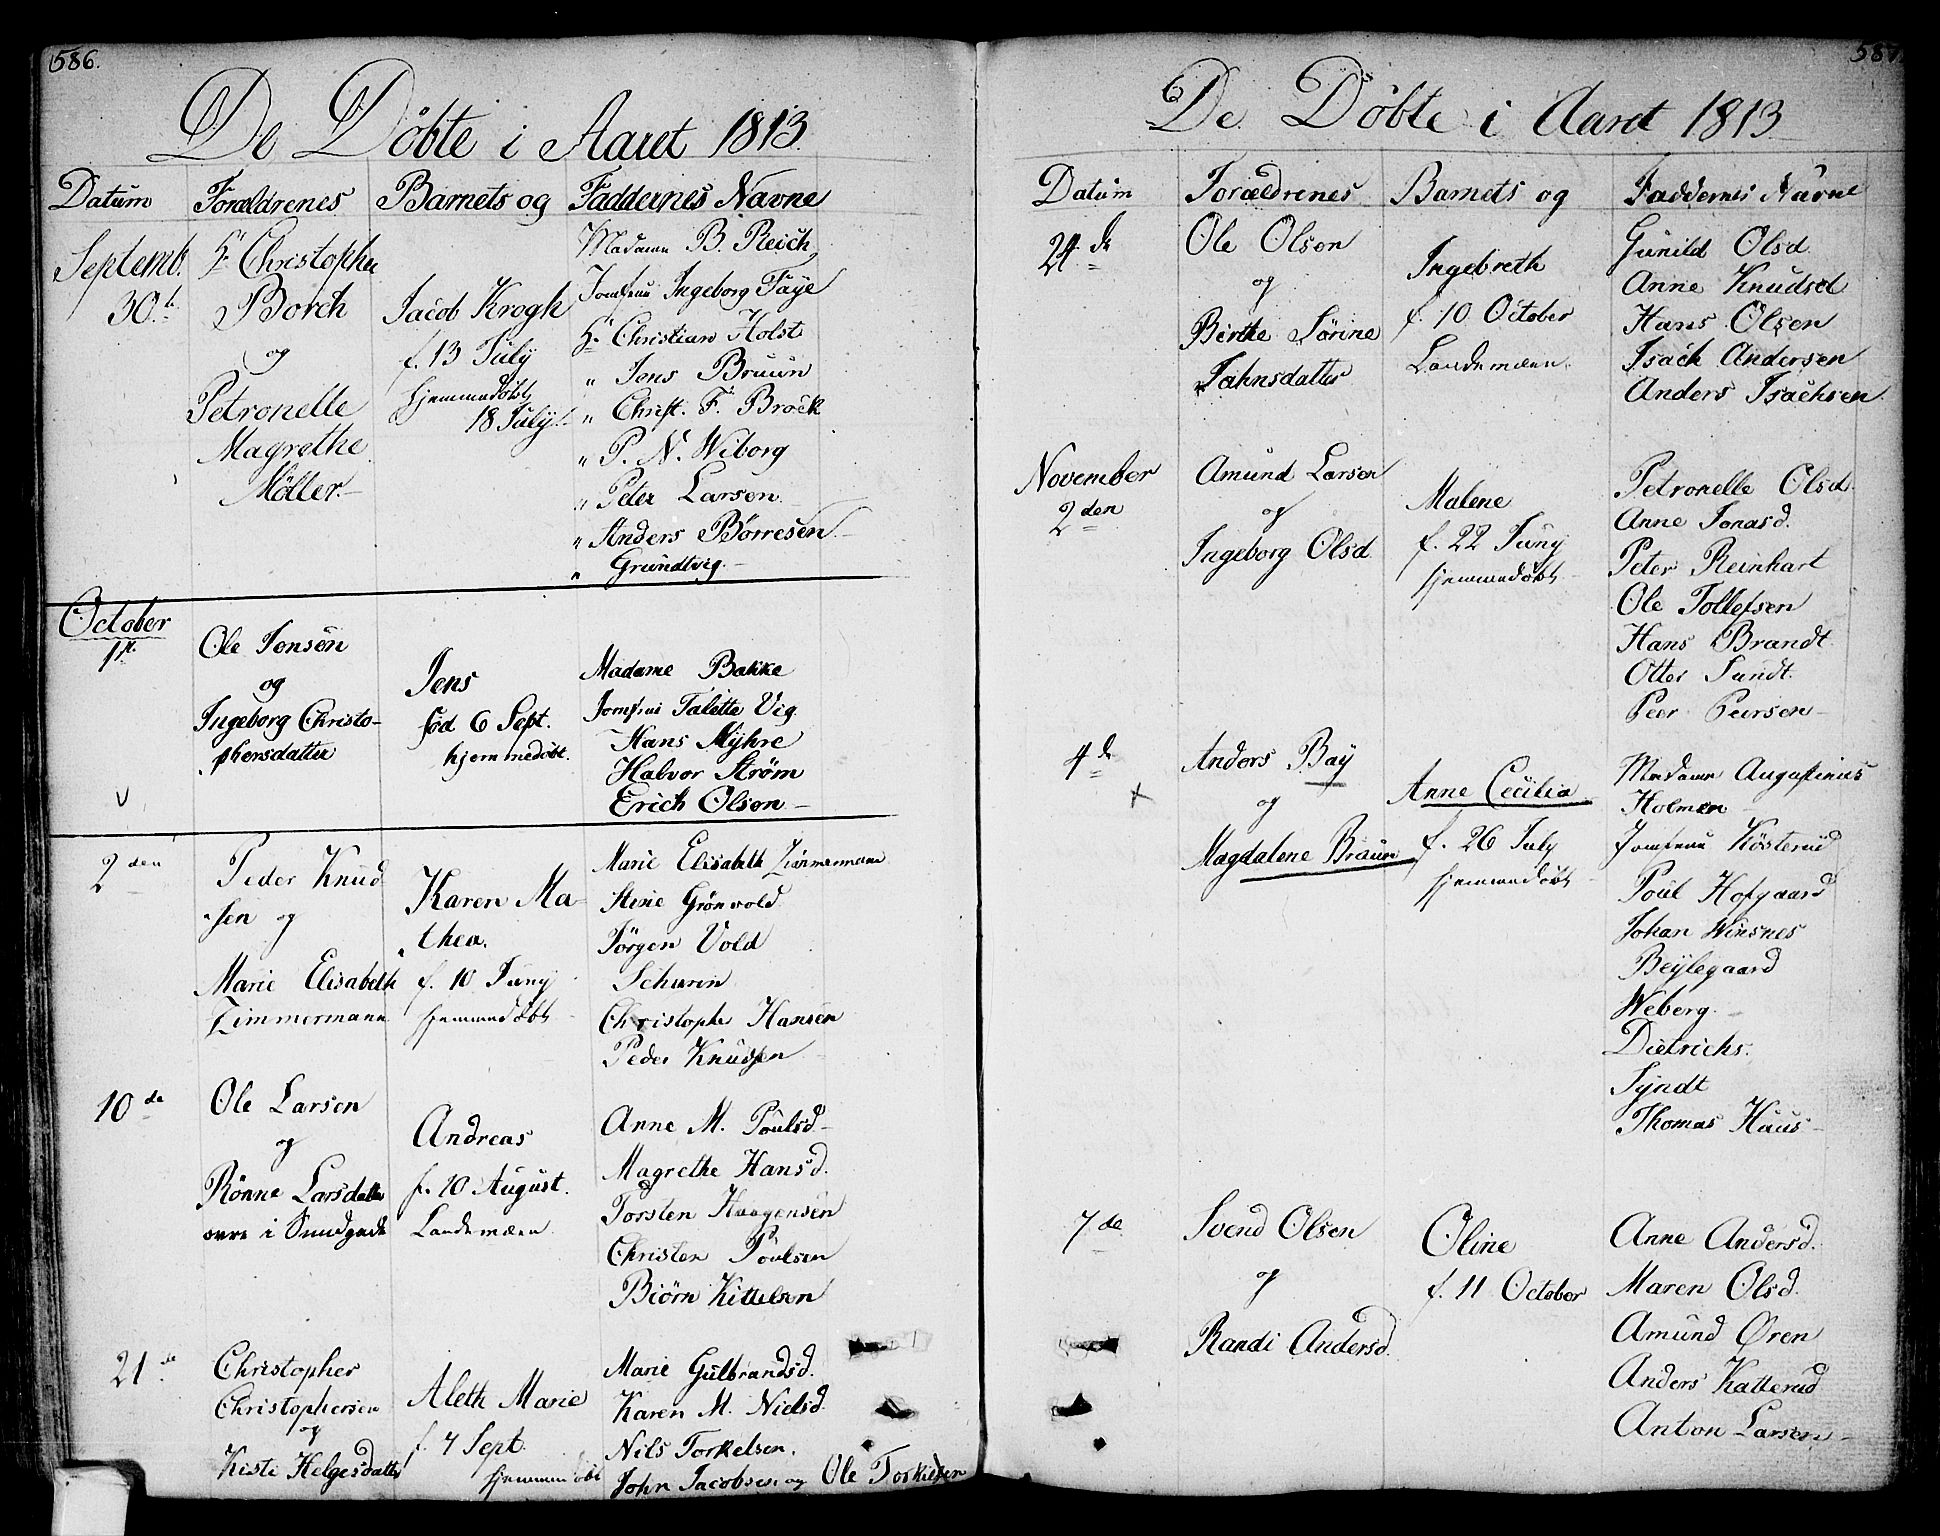 586.
De Döbte i Aaret 1813.
Datum Forældrenes Barnets og Faddernes Navne
Septemb.
30.
Hr Christopher
Borch
og
Petronelle
Magrethe
Möller.-
Jacob Krogh
f. 13 July
hjemmedöbt
18 July.
Madame B. Reich
Jomfrue Ingeborg Faÿe
Hr Christian Holst
" Jens Bruun
" Christ. F. Brock
" P. N. Wiborg
" Peter Larsen.
" Anders Börresen.-
" Grundtvig.-
October
1
Ole Jensen
og
Ingeborg Christo-
phersdatter
Jens
föd 6 Sept.
hjemmedöbt.
Madame Bakke
Jomfrue Talette Vig
Hans Mÿhre
Halvor Ström
Erich Olsen-
2den
Peder Knud
sen og
Marie Elisabeth
Zimmermann
Karen Ma-
thea.
f. 10 Juny
hjemmedöbt
Marie Elisabeth Zimmermann
Stine Grönvold
Jörgen Vold
Schurin
Christophe Hansen
Peder Knudsen
10de
Ole Larsen
og
Rönne Larsdatter
Andreas
f. 10 August.
Landemæn
Anne M. Poulsd-
Magrethe Hansd.
Torsten Haagensen
Christen Poulsen
Biörn Kittelsen
21de
Christopher
Christophersen
og
Kisti Helgesdatter
Aleth Marie
f. 7 Sept.
hjemmedöbt
Marie Gulbrandsd.
Karen M. Nielsd.
Nils Torkelsen.
John Jacobsen og Ole Torkildsen
587
De Döbte i Aaret 1813
Datum Forældrenes Barnets og Faddernes Navne
24de
Ole Olsen
og
Birthe Sörine
Jahnsdatter
Ingebreth
f. 10 October
Landemæn.
Gunild Olsd
Anne Knudsd
Hans Olsen
Isach Andersen
Anders Isachsen.
November
2den
Amund Larsen
og
Ingeborg Olsd
Malene
f. 22 Juny
hjemmedöbt
Petronelle Olsd.
Anne Jonasd.
Peter Reinhart
Ole Tollefsen
Hans Brandt.
Otter Sundt.
Peer Peersen-
4de
Anders Baÿ
og
Magdalene Braun
Anne Cecilia
f. 26 July
hjemmedöbt
Madame Augustinus
Holmen
Jomfrue Kösterud
Poul Hofgaard
Johan Winsnes
Beÿlegaard
Weberg.
Dietrichs.
Syndt
Thomas Haus-
7de
Svend Olsen
og
Randi Andersd.
Oline
f. 11 October
Anne Andersd.
Maren Olsd.
Amund Øren
Anders Katterud
Anton Larsen-